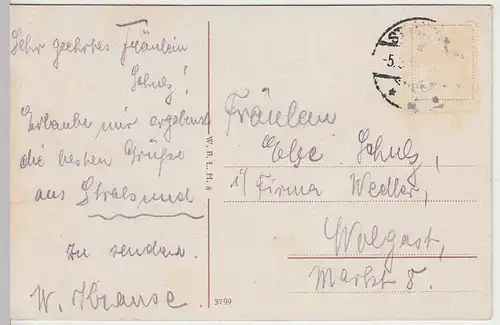 Sehr geehrtes Fräulein
Schulz!
Erlaube mir ergebenst
die besten Grüße
aus Stralsund
zu senden.
W. Krause.
W. B. L. H. 8
3799
-5.
Fräulein
Else Schulz,
i/ Firma Wedler,
Wolgast,
Markt 8.